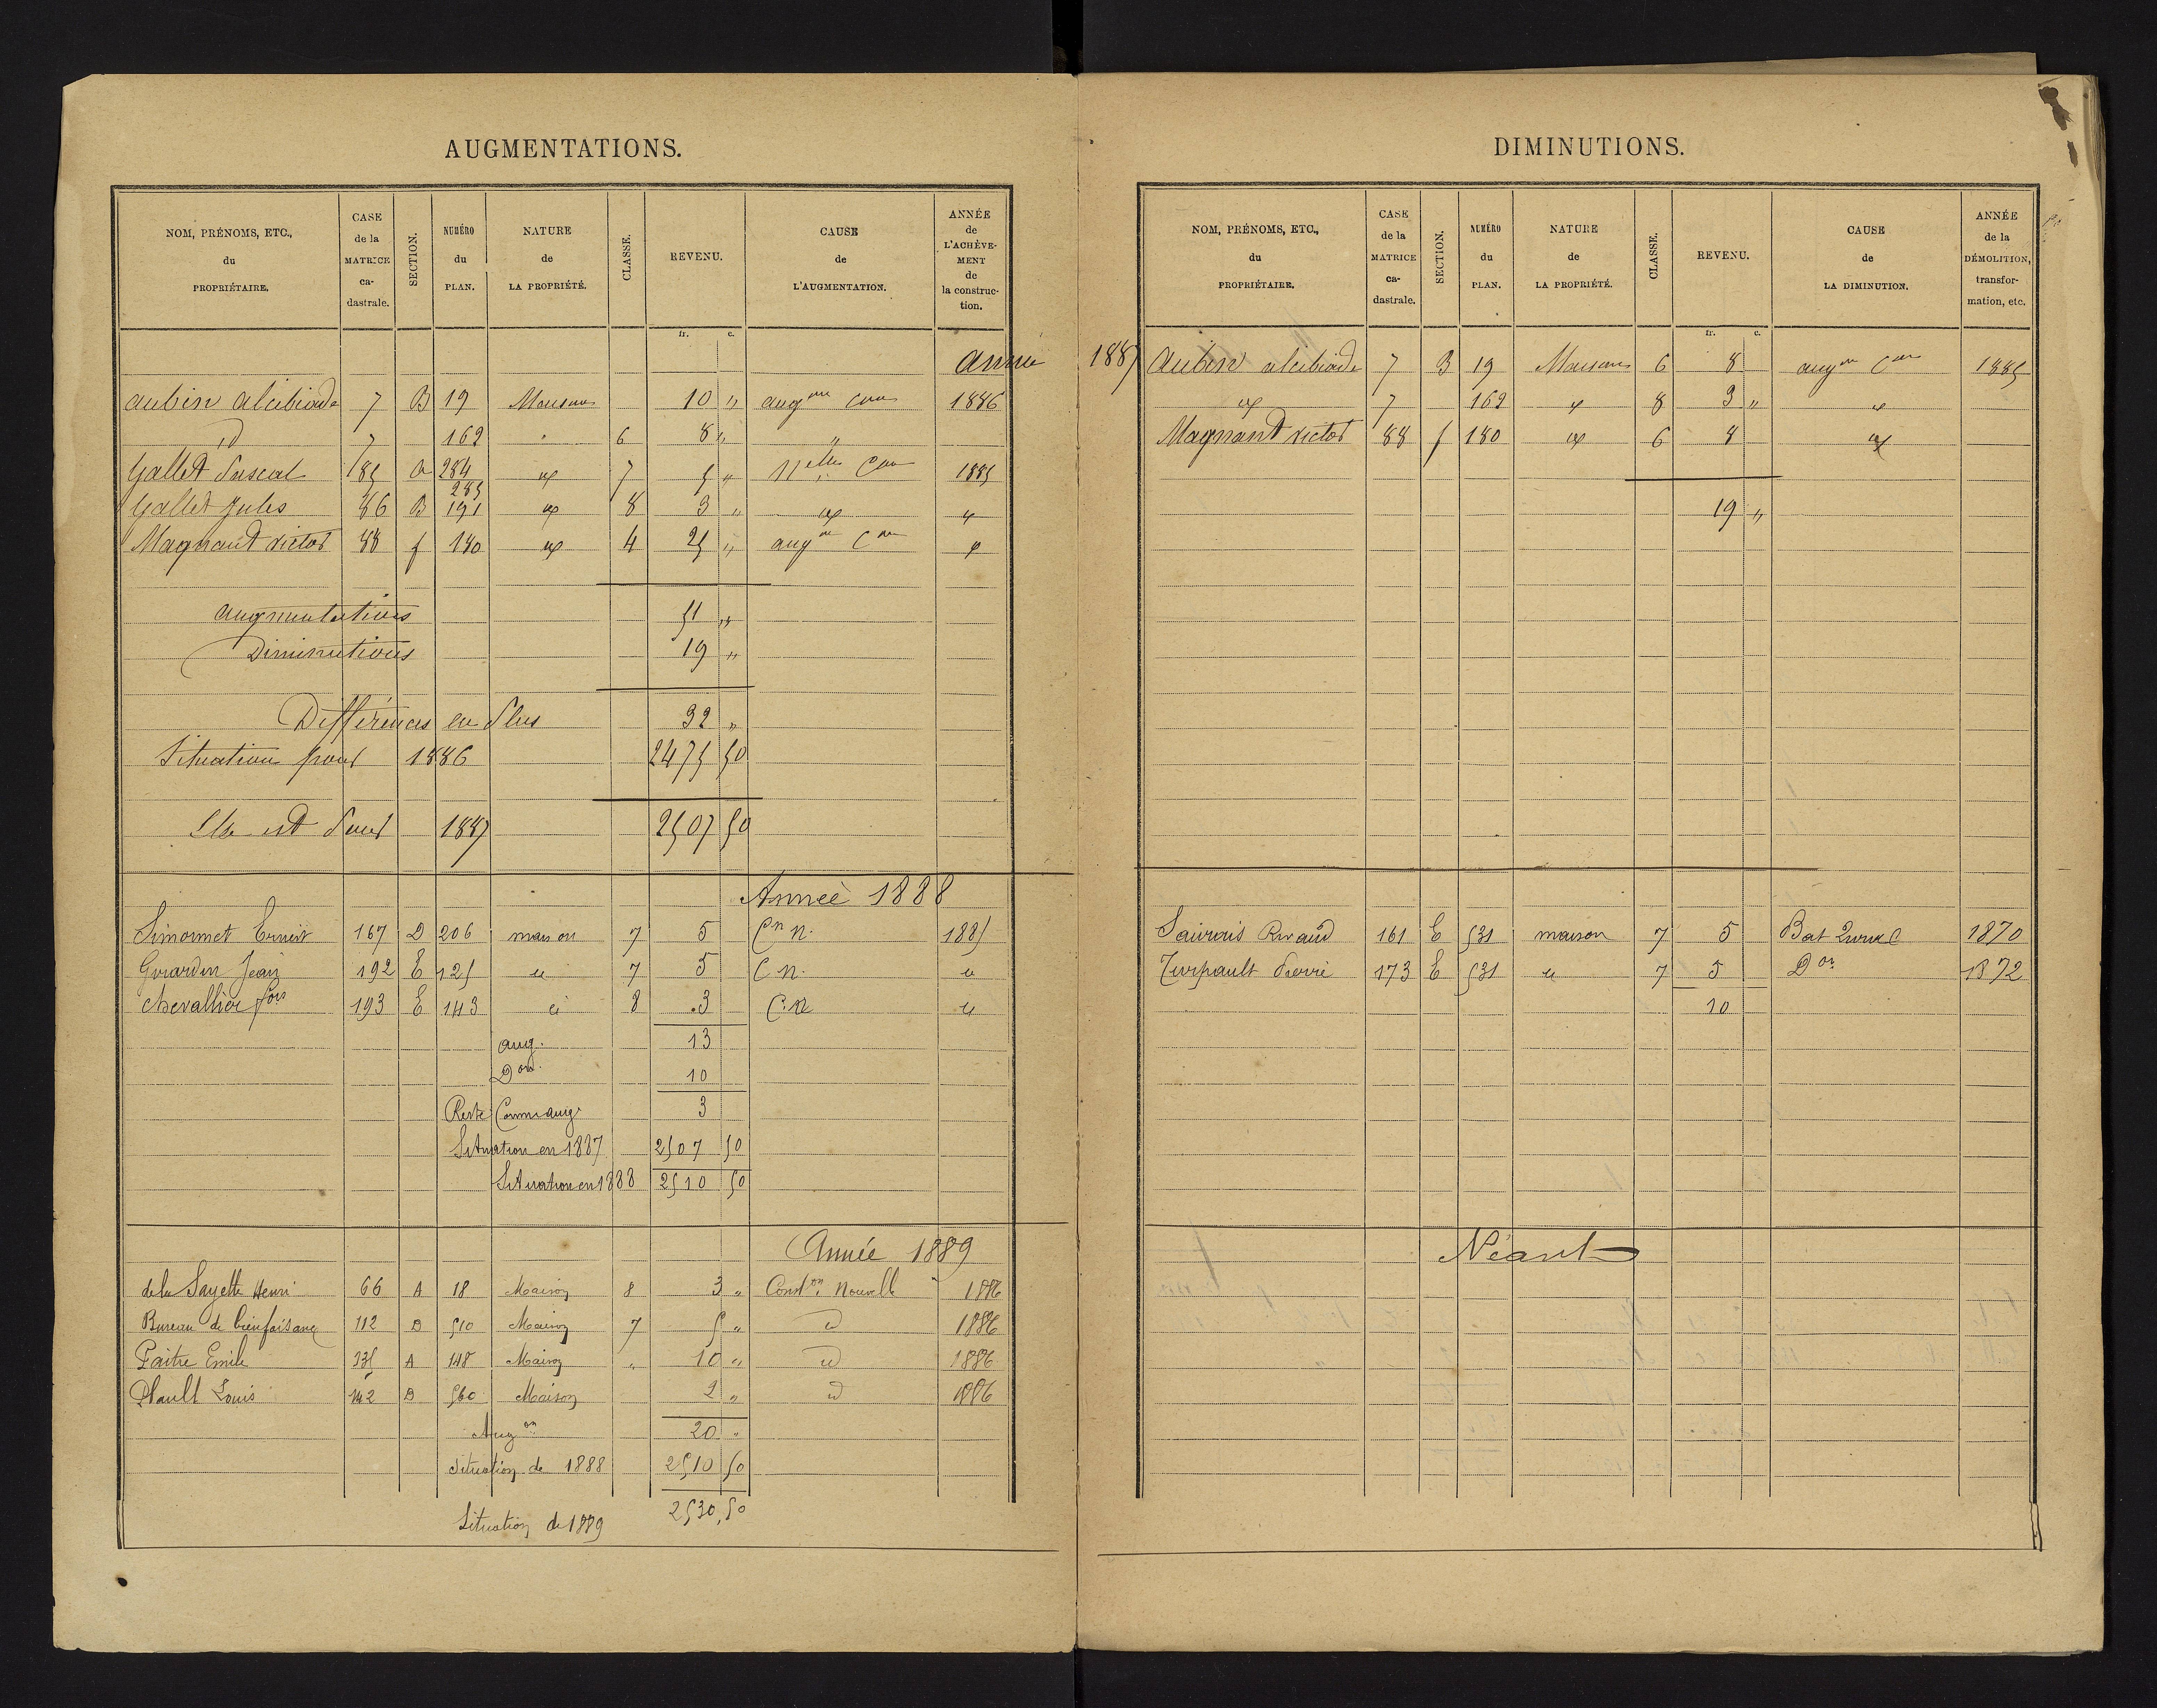 AUGMENTATIONS.
NOM, PRÉNOMS, ETC., du PROPRIÉTAIRE. CASE de la MATRICE ca-dastrale. SECTION. NUMÉRO du PLAN. NATURE de LA PROPRIÉTÉ. CLASSE. REVENU. CAUSE de L'AUGMENTATION. ANNÉE de L'ACHÈVE-MENT de la construc-tion.
fr. c.
Année 1887
Aubin Alcibiade 7 B 19 Maison 10 " augon Con 1886
id 7 162 " 6 8 " "
Gallet Pascal 185 a 284 id 7 5 " Nelle Con 1885
285
Gallet Jules 86 B 191 id 8 3 " id id
Magnant Victor 88 f 180 id 4 25 " augon Con id
Augmentations 51 "
Diminutions 19 "
Différences en Plus 32 "
Situation pour 1886 2475 50
Elle est Pour 1887 2507 50
Année 1888
Simonnet Ernest 167 D 206 maison 7 5 Cn n. 1885
Girardin Jean 192 E 125 id 7 5 C n. id
Chevallier fois 193 E 143 id 8 3 C. n id
aug. 13
Don. 10
Reste Comme aug. 3
Situation en 1887 2507 50
Situation en 1888 2510 50
Année 1889
de la Sayette Henri 66 A 18 Maison 8 3 " Conston Nouvelle 1886
Bureau de bienfaisance 112 D 510 Maison 7 5 " id 1886
Paitre Emile 135 A 148 Maison " 10 " id 1886
Plault Louis 142 D 560 Maison 2 " id 1886
Augon 20 "
Situation de 1888 2510 50
Situation de 1889 2530,50
DIMINUTIONS.
NOM, PRÉNOMS, ETC., du PROPRIÉTAIRE. CASE de la MATRICE ca-dastrale. SECTION. NUMÉRO du PLAN. NATURE de LA PROPRIÉTÉ. CLASSE. REVENU. CAUSE de LA DIMINUTION. ANNÉE de la DÉMOLITION, transfor-mation, etc.
fr. c.
Aubin Alcibiade 7 B 19 Maison 6 8 augon Con 1885
id 7 162 id 8 3 " id
Magnant Victor 88 f 180 id 6 8 id
19 "
Sauvais Rivaud 161 E 531 maison 7 5 Bat Rural 1870
Turpault Pierre 173 E 531 id 7 5 Don 1872
10
Néant